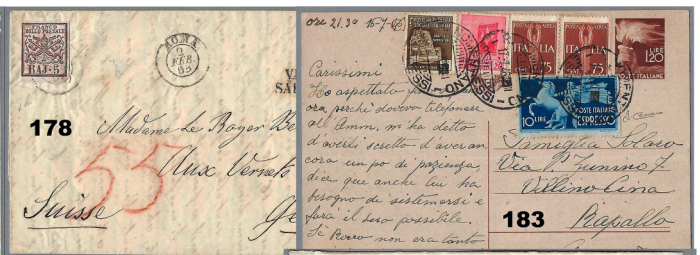 FRANCO
BOLLO POSTALE
BAJ. 5
ROMA
2
FEB.
63
178
Madame de Boyer
Aux Vernets
55
Suisse
Ge
ore 21.30 15-7-46
Carissimi
Ho aspettato
ora perchè dovevo telefonare
all'Amm. mi ha detto
d'averti scritto d'averan
cora un po di pazienza
dice che anche lui ha
bisogno di sistemarsi e
farà il suo possibile.
Sè Rocco non era tanto
ITALIA
75
ITALIA
75
LIRE
1,20
POSTE ITALIANE
10 LIRE
POSTE ITALIANE
ESPRESSO
Famiglia Solaro
Via P. Zunino 7
Villino Lina
183
Rapallo